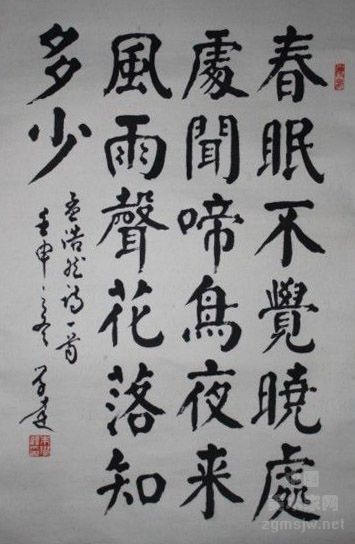 春眠不覺曉處
處聞啼鳥夜来
風雨聲花落知
多少
孟浩然诗一首
壬申之冬
zgmsjw.net